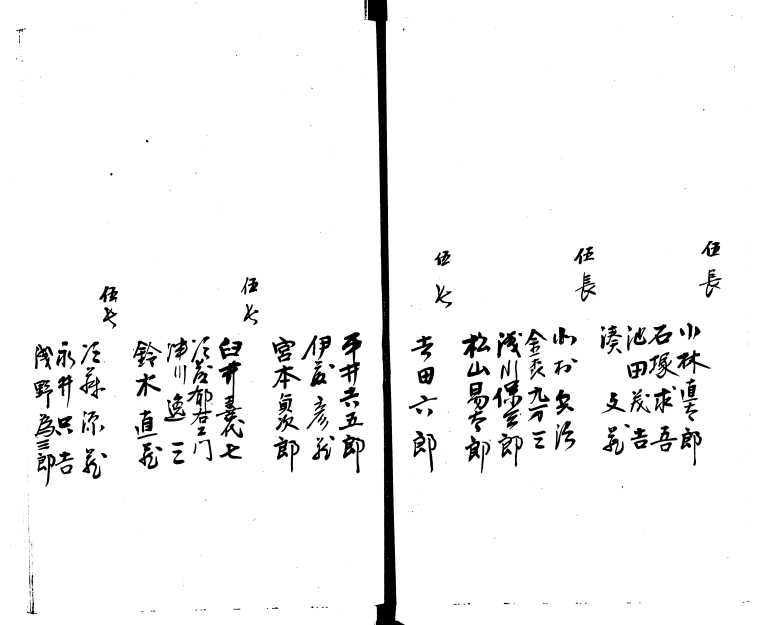 伍長
小林直太郎
石塚求吾
池田茂吉
湊文蔵
伍長
小村安治
金〓九万三
浅川保三郎
松山易太郎
伍長
吉田六郎
平井六五郎
伊藤彦蔵
宮本貞次郎
伍長
臼井嘉代七
津川逸三
鈴木直蔵
伍長
源蔵
永井只吉
浅野為三郎